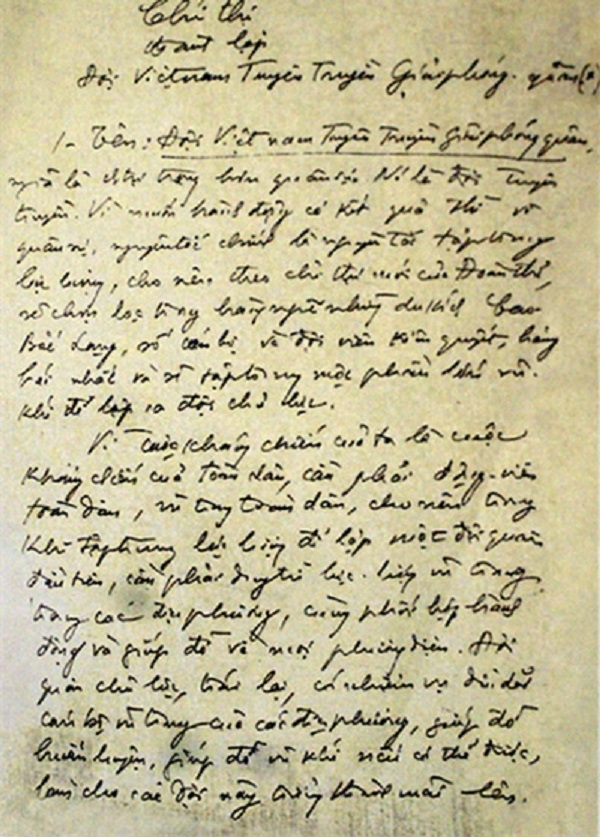 Chỉ thị
thành lập
Đội Việt nam Tuyên Truyền Giải phóng quân
1- Tên: Đội Việt nam Tuyên Truyền Giải phóng quân,
nghĩa là chính trị trọng hơn quân sự. Nó là đội tuyên
truyền. Vì muốn hành động có kết quả thì về
quân sự, nguyên tắc chính là nguyên tắc tập trung
lực lượng, cho nên, theo chỉ thị mới của Đoàn thể,
sẽ chọn lọc trong hàng ngũ những du kích Cao
Bắc Lạng, số cán bộ và đội viên kiên quyết, hăng
hái nhất và sẽ tập trung một phần lớn vũ
khí để lập ra đội chủ lực.
Vì cuộc kháng chiến của ta là cuộc
Kháng chiến của toàn dân, cần phải động viên
toàn dân, vũ trang toàn dân, cho nên trong
Khi tập trung lực lượng để lập một đội quân
đầu tiên, cần phải duy trì lực lượng vũ trang
trong các địa phương, cùng phối hợp hành
động và giúp đỡ về mọi phương diện. Đội
quân chủ lực, trái lại, có nhiệm vụ dìu dắt
cán bộ vũ trang của các địa phương, giúp đỡ
huấn luyện, giúp đỡ vũ khí nếu có thể được,
làm cho các đội này trưởng thành mãi lên.